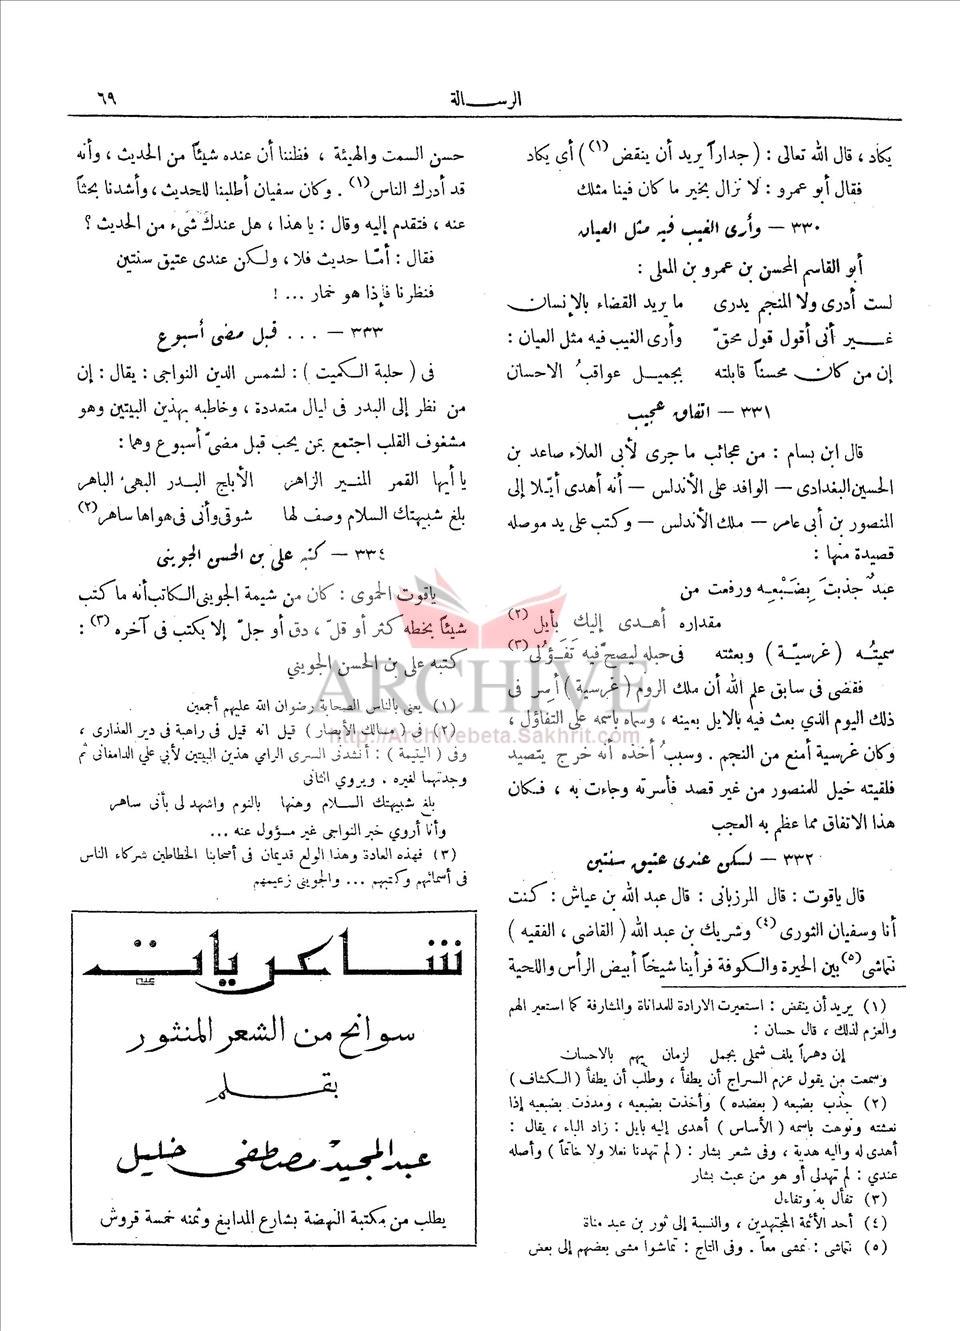 الرسالة
٦٩
يكاد ، قال الله تعالى : ( جداراً يريد أن ينقض (١) ) أي يكاد
فقال أبو عمرو : لا نزال بخير ما كان فينا مثلك
٣٣٠ — وأرى الغيب فيه مثل العيان
أبو القاسم المحسن بن عمرو بن المعلى :
لست أدرى ولا المنجم يدرى ما يريد القضاء بالإنسان
غير أنى أقول قول محقّ وأرى الغيب فيه مثل العيان :
إن من كان محسناً قابلته بجميل عواقبُ الاحسان
٣٣١ — اتفاق عجيب
قال ابن بسام : من عجائب ما جرى لأبى العلاء صاعد بن
الحسين البغدادى — الوافد على الأندلس — أنه أهدى أيّلا إلى
المنصور بن أبى عامر — ملك الأندلس — وكتب على يد موصله
قصيدة منها :
عبدٌ جذبتَ بِضَبْعِه ورفعت من
مقداره أهدى إليك بأيل (٢)
سميتُه ( غرسيّة ) وبعثته فى حبله ليصحّ فيه تَفَؤُلى (٣)
فقضى فى سابق علم الله أن ملك الروم ( غرسية ) أسر فى
ذلك اليوم الذي بعث فيه بالايل بعينه ، وسماه باسمه على التفاؤل ،
وكان غرسية أمنع من النجم . وسببُ أخذه أنه خرج يتصيد
فلقيته خيل للمنصور من غير قصد فأسرته وجاءت به ، فكان
هذا الاتفاق مما عظم به العجب
٣٣٢ — لكن عندى عتيق سنتين
قال ياقوت : قال المرزبانى : قال عبد الله بن عياش : كنت
أنا وسفيان الثورى (٤) وشريك بن عبد الله ( القاضى ، الفقيه )
نتماشى (٥) بين الحيرة والكوفة فرأينا شيخاً أبيض الرأس واللحية
(١) يريد أن ينقض : استعيرت الارادة للمداناة والمشارفة كما استعير الهم
والعزم لذلك ، قال حسان :
إن دهراً يلف شملي بجمل لزمان يهم بالاحسان
وسمعت من يقول عزم السراج أن يطفأ ، وطلب أن يطفأ ( الكشاف )
(٢) جذب بضبعه ( بعضده ) وأخذت بضبعيه ، ومددت بضبعيه إذا
نعشته ونوهت باسمه ( الأساس ) أهدى إليه بايل : زاد الباء ، يقال :
أهدى له واليه هدية ، وفى شعر بشار : ( لم تهدنا نعلا ولا خاتماً ) وأصله
عندي : لم تهدلى أو هو من عبث بشار
(٣) تفأل به وتفاءل
(٤) أحد الأئمة المجتهدين ، والنسبة إلى ثور بن عبد مناة
(٥) نتماشى : نمشى معاً . وفى التاج : تماشوا مشى بعضهم إلى بعض
حسن السمت والهيئة ، فظننا أن عنده شيئاً من الحديث ، وأنه
قد أدرك الناس (١) . وكان سفيان أطلبنا للحديث ، وأشدنا بحثاً
عنه ، فتقدم إليه وقال : يا هذا ، هل عندك شىء من الحديث ؟
فقال : أمّا حديث فلا ، ولكن عندى عتيق سنتين
فنظرنا فإذا هو خمار ... !
٣٣٣ — ... قبل مضى أسبوع
فى ( حلبة الكميت ) : لشمس الدين النواجى : يقال : إن
من نظر إلى البدر فى ليال متعددة ، وخاطبه بهذين البيتين وهو
مشغوف القلب اجتمع بمن يحب قبل مضىّ أسبوع وهما :
يا أيها القمر المنير الزاهر الأبلج البدر البهى الباهر
بلغ شبيهتك السلام وصف لها شوقى وأنى فى هواها ساهر (٢)
٣٣٤ — كتبه على بن الحسن الجوينى
ياقوت الحموى : كان من شيمة الجوينى الكاتب أنه ما كتب
شيئاً بخطه كثر أو قلّ ، دق أو جلّ إلا يكتب فى آخره (٣) :
كتبه على بن الحسن الجويني
(١) يعنى بالناس الصحابة رضوان الله عليهم أجمعين
(٢) فى ( مسالك الأبصار ) قيل انه قيل فى راهبة فى دير العذارى ،
وفى ( اليتيمة ) : أنشدنى السرى الرامي هذين البيتين لأبي علي الدامغانى ثم
وجدتهما لغيره . ويروي الثانى
بلغ شبيهتك السلام وهنها بالنوم واشهد لى بأنى ساهر
وأنا أروي خبر النواجى غير مسؤول عنه ...
(٣) فهذه العادة وهذا الولع قديمان فى أصحابنا الخطاطين شركاء الناس
فى أسمائهم وكتبهم ... والجوينى زعيمهم
شاكريات
سوانح من الشعر المنثور
بقلم
عبد المجيد مصطفى خليل
يطلب من مكتبة النهضة بشارع المدابغ وثمنه خمسة قروش
ARCHIVE
http://Archivebeta.Sakhrit.com